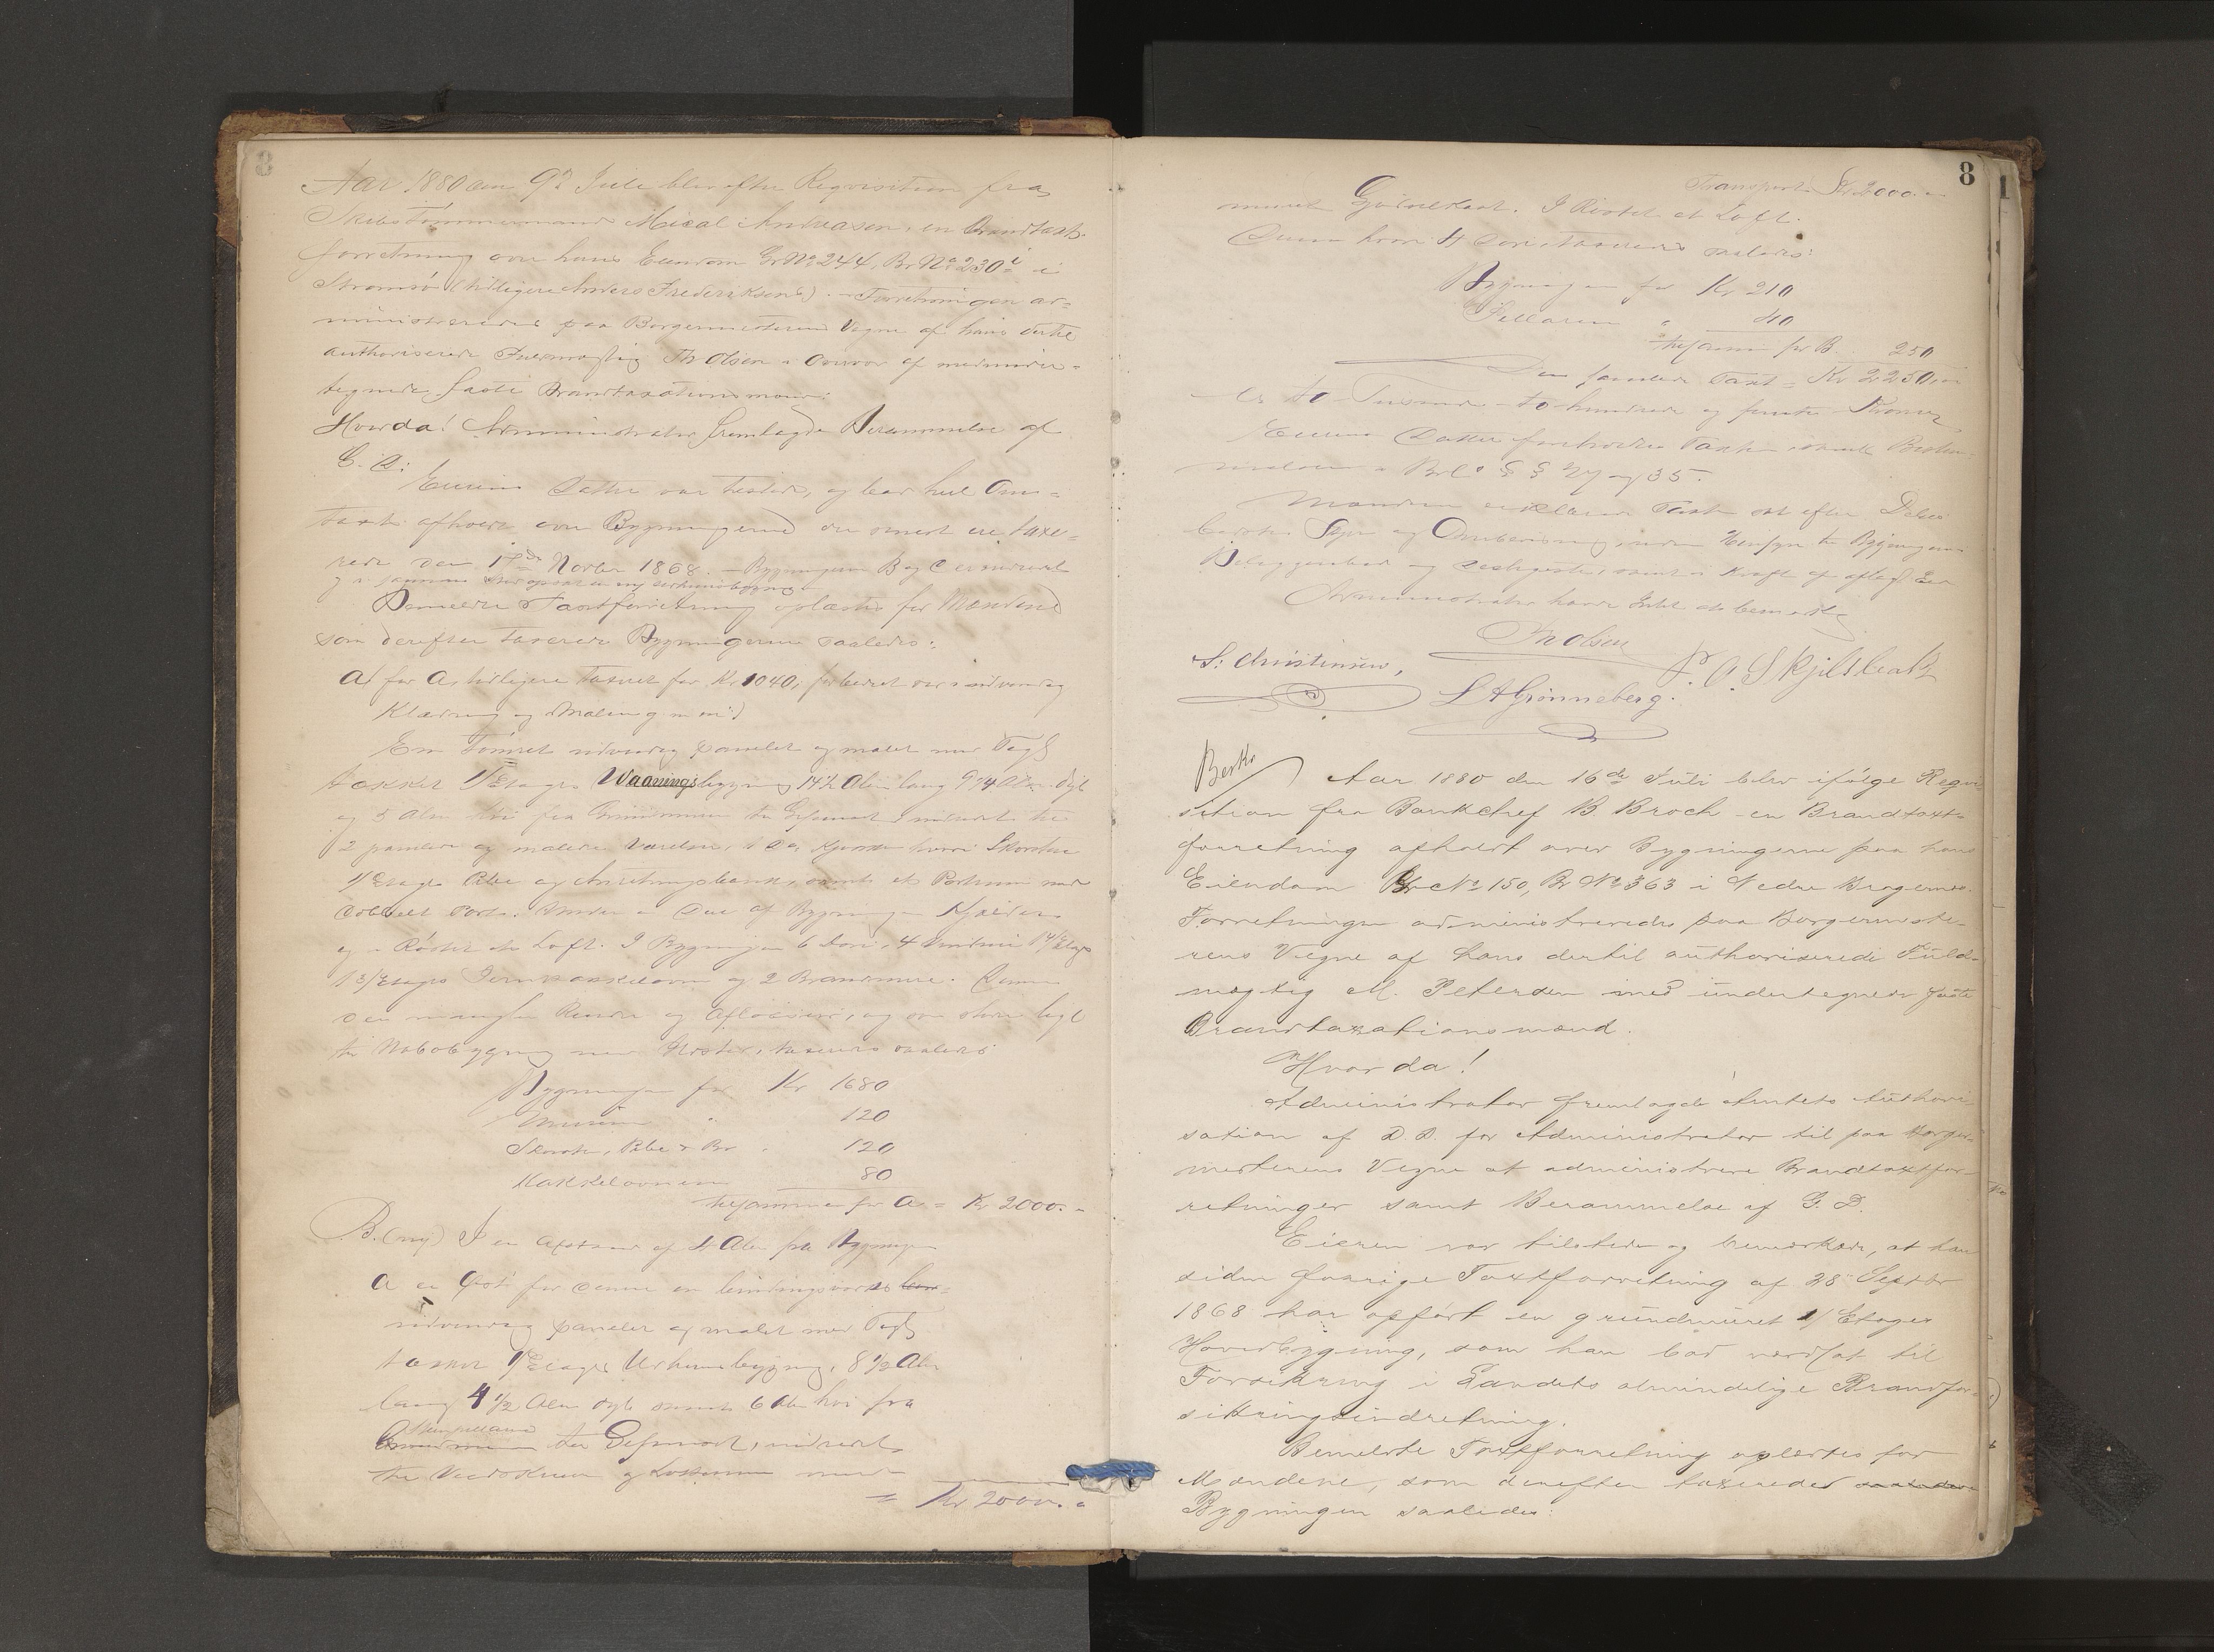 8
Aar 1880 den 9de Juli blev efter Requisition fra
Skibstømmermand Micael Andreasen, en Brandtaxt-
forretning over hans Eiendom Gr No 244, Br No 230 i i
Strømsø (tidligere Anders Frederiksens). Forretningen ad-
ministreredes paa Borgermesterens Vegne af hans dertil
authoriserede Fuldmægtig Th Olsen i Overvær af medunder-
tegnede faste Brandtaxationsmænd:
Hvorda! Administrator fremlagde Berammelse af
G. D:
Eierens Datter var tilstede, og bad hel Om-
taxt afholdt over Bygningerne der senest ere taxe-
rede den 17de Novber 1868. Bygningerne B og C er nedrevet
og i sammes Sted opsat en ny Udhusbygning
Bemeldte Taxtforretning oplæstes for Mændene
som derefter taxerede Bygningerne saaledes:
A) før A, tidligere taxeret for Kr 1040, forbedret ved udvendig
Klædning og Maling m m:)
En tømret udvendig panelet og malet med Tagst
tækket 1/Etages Vaaningsbygning 14½ Alen lang 9¼ Alen dyb
og 5 Alen høi fra Grundmuren til Gesimset, indredet til
2 panelede og malede Værelser, Kjøkken hvori Skorsten
1/Etages Pibe og Anretningsbænk, samt et Portrum med
dobbelt Port. Under en Del af Bygningen Kjælder
og i Røstet et Loft. I Bygningen 6 Døre, 4 Vinduer 1 4/Etages
1 3/Etages Jernkakkelovn og 2 Brandmure. Denne
der mangler Render og Afløbsrør, og som støder lige
til Nabobygning mod Nordost, taxeres saaledes
Bygningen for Kr 1680
Muren " 120
Skorsten, Pibe & Br " 120
Kakkelovnene 80
tilsammen for A = Kr 2000. "
B. (ny) I en Afstand af 4 Alen fra Bygningen
A en Øst for denne en bindingsværks
udvendig panelet og malet med Tagst
tækket 1/Etages Udhusbygning, 8½ Alen
lang 4½ Alen dyb samt 6 Alen høi fra
Stenpillarne
Grundmuren til Gesimset, indredet
til Vedskur og med
= Kr 2000. "
8
Transport Kr 2000. "
muret Gjødselkast. I Røstet et Loft.
Denne hvori 4 Døre, taxeredes saaledes:
Bygningen for Kr 210
Pillarene " 40
tilsammen for B. 250
Den samlede Taxt = Kr 2250
er to Tusinde to hundrede og femti Kroner
Eierens Datter forelæstes Taxten samt Bestem-
melserne i Brl's §§ 27 og 35.
Mændene erklærede Taxten sat efter Deres
bedste Skjøn og Overbevisning, uden Hensyn til Bygningens
Beliggenhed og Bekvemhed, samt i Kraft af aflagt Ed
Administrator havde Intet at bemærke
Th Olsen
S: Christensen, P. A. Skjeldbeck
S A Grønneberg.
Besk
Aar 1880 den 16de Juli blev ifølge Requi-
sition fra Bankchef B. Broch en Brandtaxt-
forretning afholdt over Bygningerne paa hans
Eiendom Gr No 150, Br No 363 i Nedre Bragernes.
Forretningen administreredes paa Borgermeste-
rens Vegne af hans dertil authoriserede Fuld-
mægtig M. Petersen med undertegnede faste
Brandtaxationsmænd.
Hvorda!
Administrator fremlagde Amtets Authori-
sation af D. D. for Administrator til paa Borger-
mesterens Vegne at administrere Brandtaxtfor-
retninger samt Berammelse af G. D.
Eieren var tilstede og bemærkede, at han
siden forrige Taxtforretning af 28de Septbr
1868 har opført en grundmuret 1/Etages
Hovedbygning, som han bad værdsat til
Forsikring i Landets almindelige Brandfor-
sikringsindretning.
Bemeldte Taxtforretning oplæstes for
Mændene, som derefter taxerede
Bygningen saaledes: